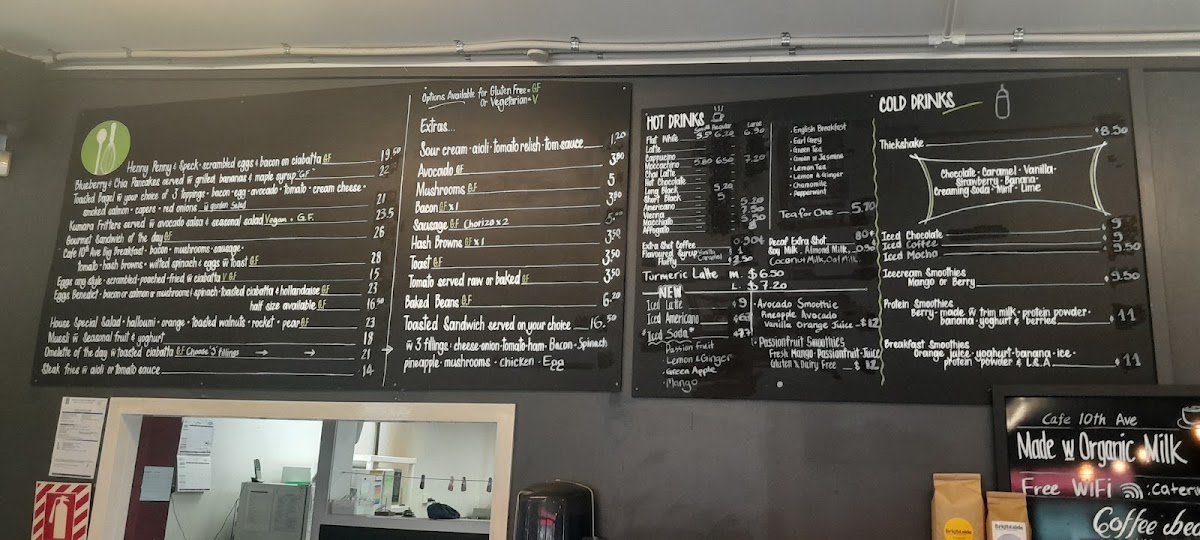 Henry Penny & Speck • scrambled eggs & bacon on ciabatta GF 19.50
Blueberry & Chia Pancakes served w grilled bananas & maple syrup "GF" 22
Toasted Bagel w your choice of 3 toppings • bacon • egg • avocado • tomato • cream cheese •
smoked salmon • capers • red onions w garden salad 21
Kumara Fritters served w avocado salsa & seasonal salad Vegan • G.F. 23.5
Gourmet Sandwich of the day GF 26
Cafe 10th Ave Big Breakfast • bacon • mushrooms • sausage •
tomato • hash browns • wilted spinach & eggs w toast GF 28
Eggs any style • scrambled • poached • fried w ciabatta V GF 15
Eggs Benedict • bacon or salmon or mushrooms & spinach • toasted ciabatta & hollandaise GF 23
half size available GF 16.50
House Special Salad • halloumi • orange • toasted walnuts • rocket • pear GF 23
Muesli w Seasonal fruit & yoghurt 18
Omelette of the day w toasted ciabatta GF Choose "3" fillings → → 21
Steak fries w aioli or tomato sauce 14
Options Available for Gluten Free = GF
or Vegetarian = V
Extras...
Sour cream • aioli • tomato relish • tom sauce 1.20
Avocado GF 3.80
Mushrooms GF 5
Bacon GF x 1 3.80
Sausage GF Chorizo x 2
Hash Browns GF x 1 3.50
Toast GF 3.50
Tomato served raw or baked GF 3.50
Baked Beans GF 6.20
Toasted Sandwich served on your choice 16.50
w 3 fillings • cheese • onion • tomato • ham • Bacon • Spinach
pineapple • mushrooms • chicken • Egg
HOT DRINKS
Small Regular Large
Flat White 6.20 6.90
Latte
Cappucino
Moccachino 5.80 6.50 7.20
Chai Latte
Hot Chocolate
Long Black 5.20
Short Black 5
Americano
Vienna
Macchiato
Affogato
• English Breakfast
• Earl Grey
• Green Tea
• Green w Jasmine
• Lemon Tea
• Lemon & Ginger
• Chamomile
• Peppermint
Tea for One 5.70
Extra Shot Coffee 0.90¢
Flavoured Syrup Vanilla Caramel
Fluffy 2.50
Decaf Extra Shot 80¢
Soy Milk • Almond Milk
Coconut Milk, Oat Milk
Turmeric Latte M. $6.50
L. $7.20
NEW
Iced Latte
Iced Americano
*Iced Soda*
• Passion fruit
• Lemon & Ginger
• Green Apple
• Mango
• Avocado Smoothie
Pineapple Avocado
Vanilla Orange Juice $12
• Passionfruit Smoothies
Fresh Mango • Passionfruit • Juice
Gluten & Dairy Free $12
COLD DRINKS
Thickshake $8.50
Chocolate • Caramel • Vanilla •
Strawberry • Banana •
Creaming • Soda • Mint • Lime
Iced Chocolate 9
Iced Coffee 9
Iced Mocha
Icecream Smoothies
Mango or Berry $9.50
Protein Smoothies
Berry • made w trim milk • protein powder •
banana • yoghurt & berries $11
Breakfast Smoothies
Orange juice • yoghurt • banana • ice •
protein powder & L.S.A $11
Cafe 10th Ave
Made w Organic Milk
Free WIFI
Coffee